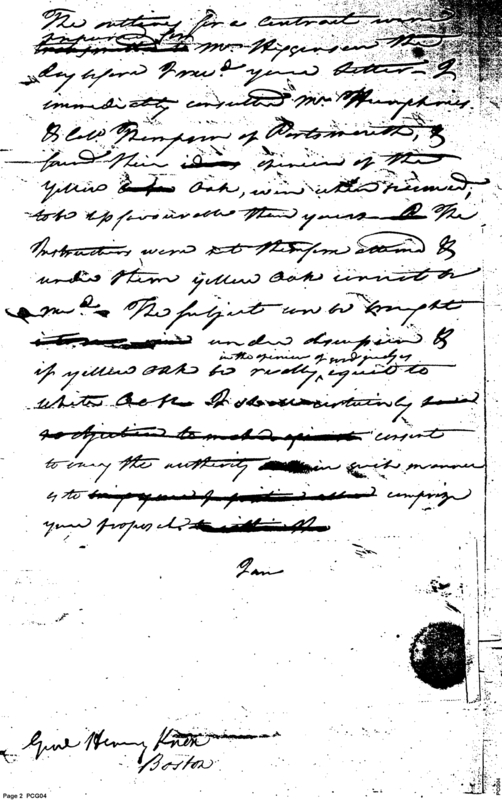 The outlines for a contract were
prepared for Mr Higginson the
day before I recd your letter — I
immediately consulted Mr Humphries
& Colo Thompson of Portsmouth, &
found their opinion of the
yellow Oak, was when seasoned,
to be less favourable than yours — The
Instructions were not therefore altered &
under them yellow Oak cannot be
recd. — The subject can be brought
under discussion &
if yellow Oak be really, in the opinion of good judges equal to
white Oak I certainly
consent
to vary the authority in such manner
as to comprize
your proposal.
I am
Genl Henry Knox
Boston
Page 2 PCG04